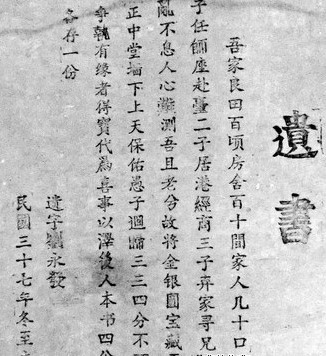 遺書
吾家良田百頃房舍百十間家人几十口
子任師座赴臺二子居港經商三子弃家尋兄
亂不息人心難測吾且老兮故將金銀圓宝藏
正中堂墙下上天保佑愚子迴歸三三四分不
爭執有缘者得寳代為喜事以澤後人本書四份
各存一份
遺字劉永發
民國三十七年冬至